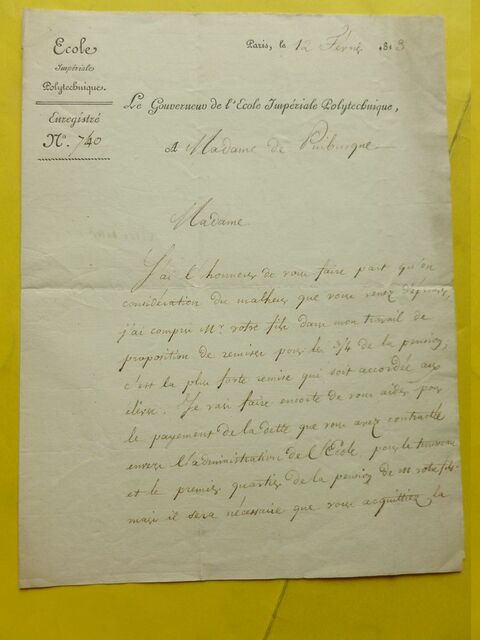 Ecole
Impériale
Polytechnique.
Enregistré
N°. 740
Paris, le 12 Févrie 1813
Le Gouverneur de l'Ecole Impériale Polytechnique,
A Madame de Puibusque
Madame
J'ai l'honneur de vous faire part qu'en
considération du malheur que vous venez d'éprouver,
j'ai compris Mr. votre fils dans mon travail de
proposition de remises pour les 3/4 de la pension,
c'est la plus forte remise qui soit accordée aux
élèves. Je vais faire ensorte de vous aider pour
le payement de la dette que vous avez contractée
envers l'administration de l'Ecole, pour le trousseau
et le premier quartier de la pension de M votre fils
mais il sera nécessaire que vous acquittiez la